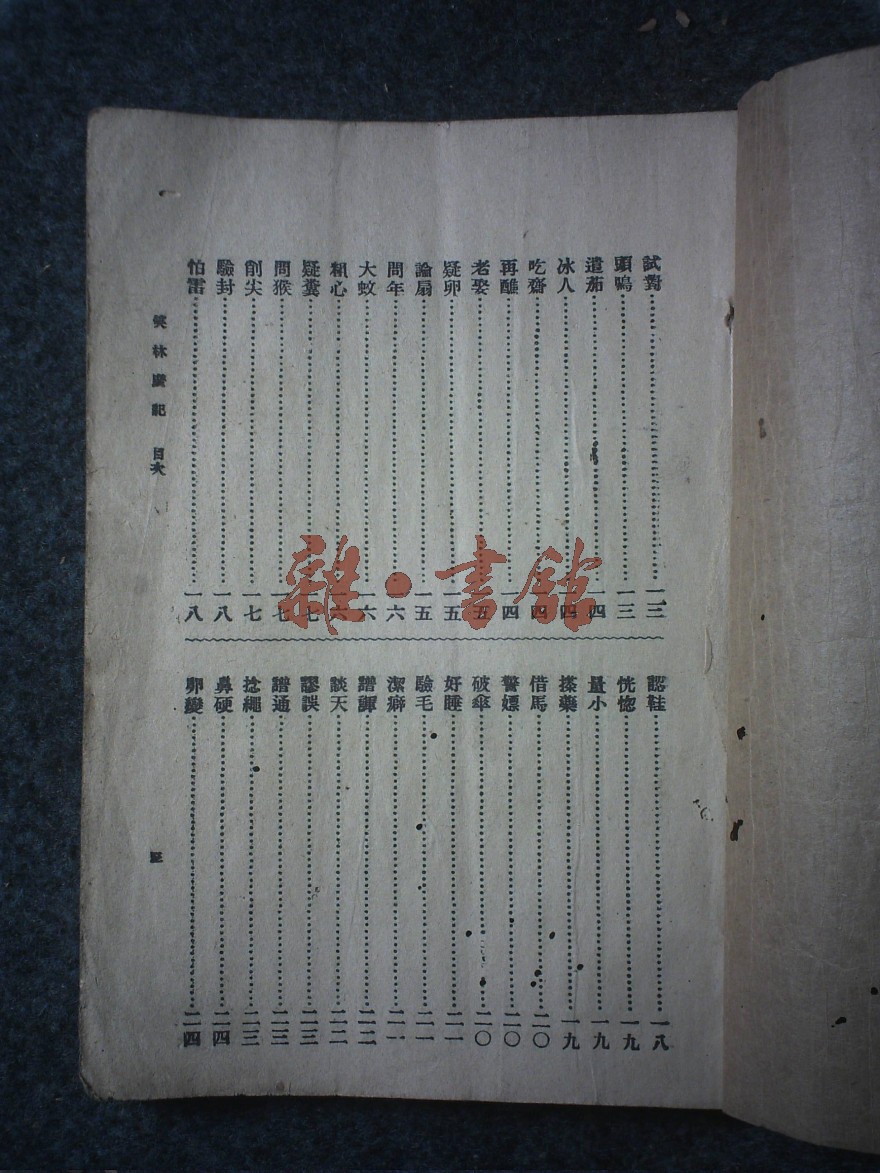 試對……一三
頭鳴……一三
遣茄……一四
冰人……一四
吃齋……一四
再醮……一四
老娶……一五
疑卵……一五
論扇……一五
問年……一六
大蚊……一六
粗心……一六
疑糞……一七
問猴……一七
削尖……一七
驗封……一八
怕雷……一八
認鞋……一八
恍惚……一九
量小……一九
搽藥……一九
借馬……二〇
警嫖……二〇
破傘……二〇
好睡……二一
驗毛……二一
潔癖……二一
談天……二二
謬誤……二三
譜通……二三
捻繩……二三
鼻硬……二四
卵變……二四
笑林廣記 目次
三
雜·書館